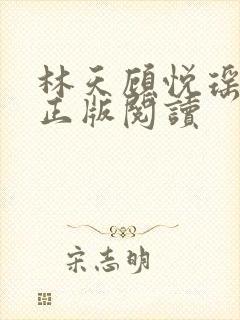 林天顾悦瑶
正版閱讀
宋志明